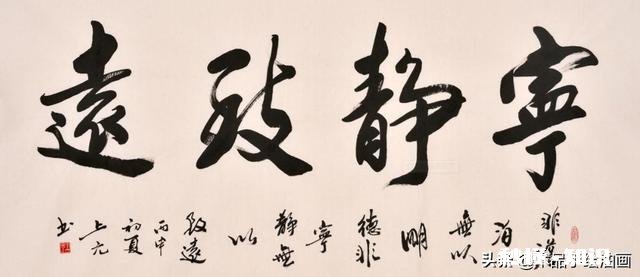 寧靜致遠
非澹
泊
無以
明
德非
寧
靜無
以
致遠
丙申
初夏
上元
书